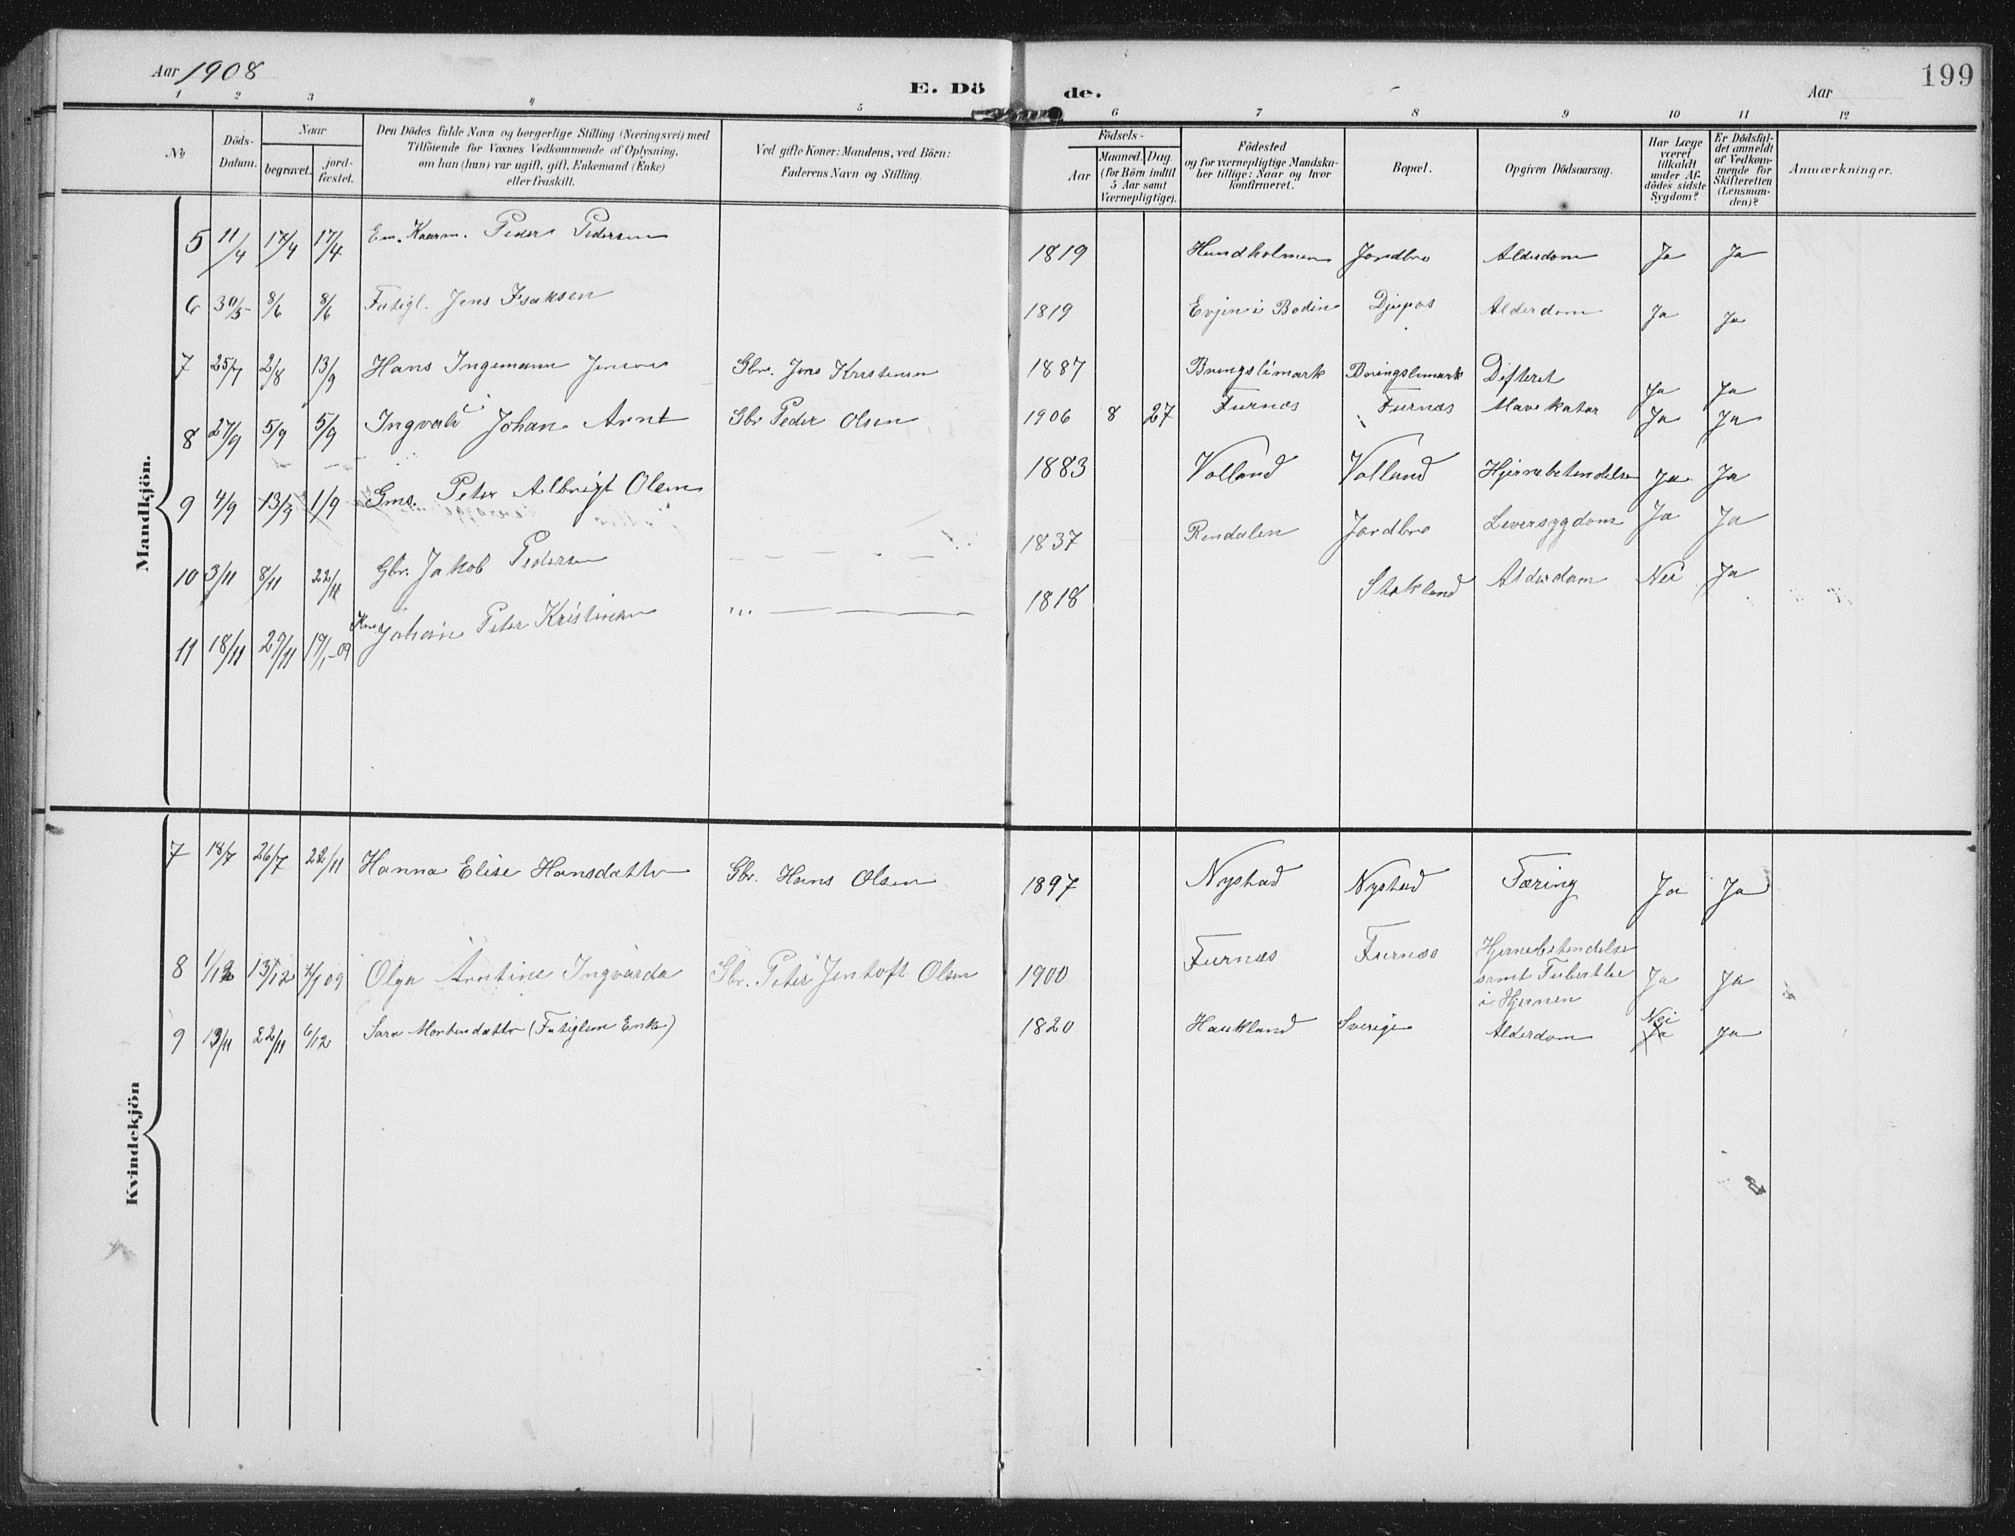 Aar 1908
E. Dö de.
Aar
199
1 2 3 4 5 6 7 8 9 10 11 12
No
Döds-Datum.
Naar
begravet.
jord-fæstet.
Den Dödes fulde Navn og borgerlige Stilling (Næringsvei) med
Tilföiende for Voxnes Vedkommende af Oplysning,
om han (hun) var ugift, gift, Enkemand (Enke)
eller fraskilt.
Ved gifte Koner: Mandens, ved Börn:
Faderens Navn og Stilling.
Födsels-
Aar
Maaned. Dag.
(for Börn indtil
5 Aar samt
Værnepligtige).
Födested
og for værnepligtige Mandska-
ber tillige: Naar og hvor
konfirmeret.
Bopæl.
Opgiven Dödsaarsag.
Har Læge
været
tilkaldt
under Af-
dödes sidste
Sygdom?
Er Dödsfal-
det anmeldt
af Vedkom-
mende for
Skifteretten
(Lensman-
den)?
Anmærkninger.
Mandkjön.
5 11/4 17/4 17/4 Em. Kaarm. Peder Pedersen 1819 Hundholmen Jordbro Alderdom Ja Ja
6 30/5 8/6 8/6 Fatigl. Jens Isaksen 1819 Evjen i Bodin Djupos Alderdom Ja Ja
7 25/7 2/8 13/9 Hans Ingemann Jensen Gbr. Jens Kristensen 1887 Bringslimark Bringslimark Difteret Ja Ja
8 27/9 5/9 5/9 Ingvald Johan Arnt Gbr Peder Olsen 1906 8 27 Furnæs Furnæs Mavekatar Ja Ja
9 4/9 13/9 1/9 Gms. Peter Albrigt Olsen 1883 Volland Volland Hjernebetendelse Ja Ja
10 3/11 8/11 22/11 Gbr. Jakob Pedersen 1837 Rendalen Jordbro Leversygdom Ja Ja
11 18/11 29/11 19/1-09 Johan Peter Kristensen 1818 Stokland Alderdom Nei Ja
Kvindekjön
7 18/7 26/7 22/11 Hanna Elise Hansdatter Gbr. Hans Olsen 1897 Nystad Nystad Tæring Ja Ja
8 1/12 13/12 09 Olga Arntine Ingvarda Gbr. Peter Jentoft Olsen 1900 Furnæs Furnæs Hjernebetendelse
samt Tuberkler
i Hjernen Ja Ja
9 13/11 22/11 6/12 Sara Mortensdatter (Fatiglem Enke) 1820 Haukland Sverige Alderdom Nei Ja Ja